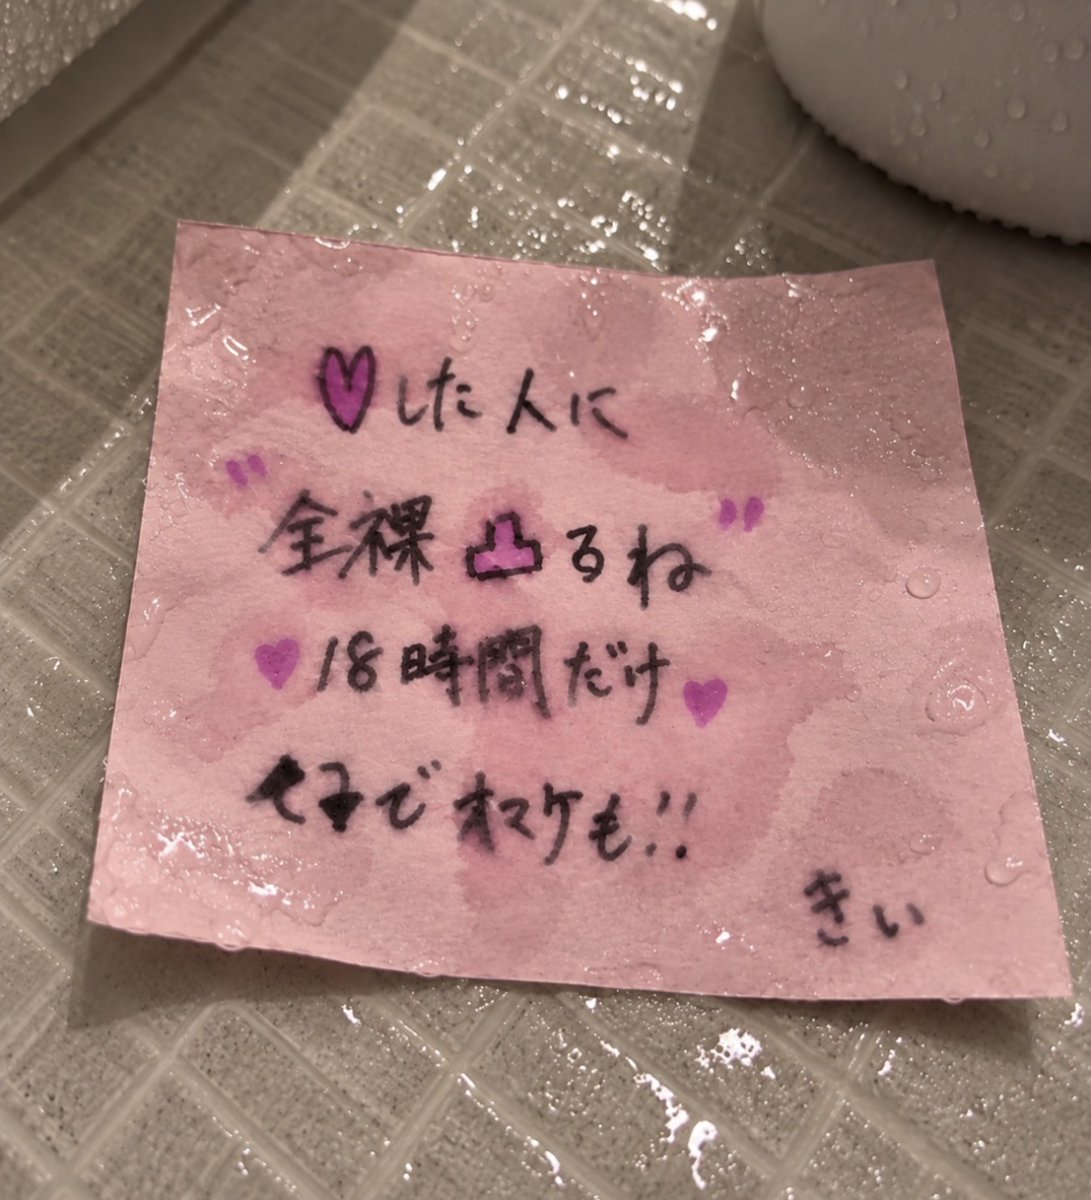 ♥した人に
"全裸凸るね"
♥18時間だけ♥
でオマケも!!
きぃ